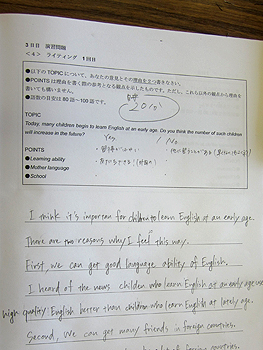 3日目 演習問題
<4> ライティング 1回目
●以下のTOPICについて、あなたの意見とその理由を2つ書きなさい。
●POINTSは理由を書く際の参考となる観点を示したものです。ただし、これら以外の観点から理由を
書いても構いません。
●語数の目安は80語~100語です。
20分
TOPIC
Today, many children begin to learn English at an early age. Do you think the number of such children
will increase in the future?
Yes No
POINTS
●Learning ability
●Mother language
●School
I think it's importan for children to learn English at an early age.
There are two reasons why I feel this way.
First, we can get good language ability of English.
I heard of the news children who learn English at an early age use
high quality English better than children who learn English at lately age.
Second, We can get many friends in foreign countries.
foreign countries.